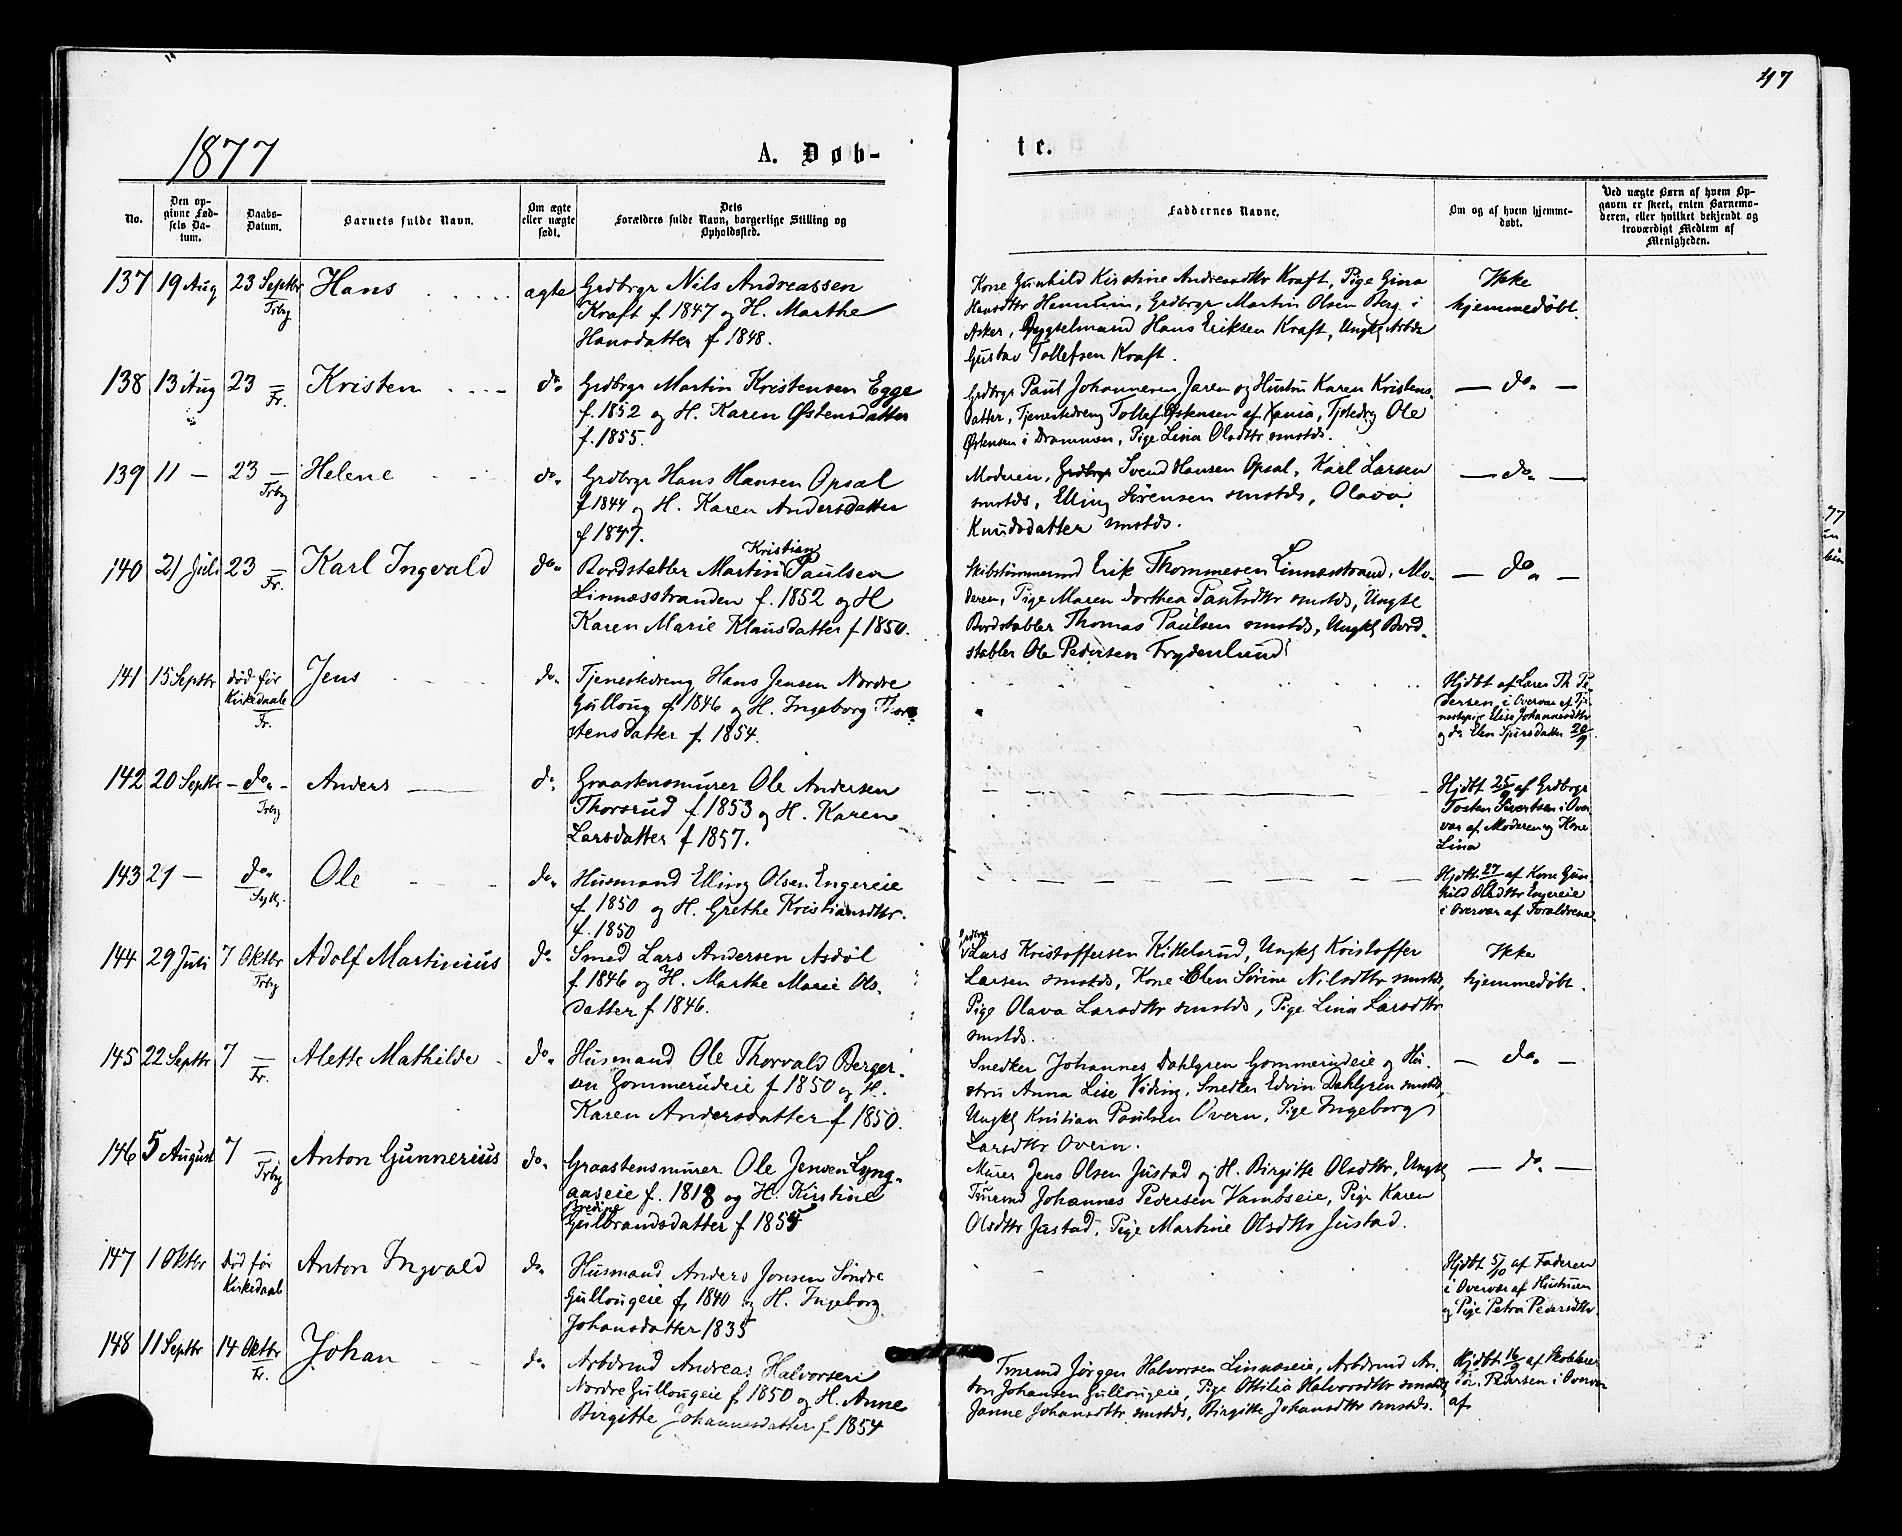 47
1877
A. Døb-
te.
No.
Den op-
givne Fød-
sels Da-
tum.
Daabs-
Datum.
Barnets fulde Navn.
Om ægte
eller uægte
født.
Dets
Forældres fulde Navn, borgerlige Stilling og
Opholdssted.
Faddernes Navne.
Om og af hvem hjemme-
døbt.
Ved uægte Børn af hvem Op-
gaven er skeet, enten Barnemo-
deren, eller hvilket bekjendt og
troværdigt Medlem af
Menigheden.
137 19 Aug 23 Septbr Trby Hans ægte
Grdbrgr Nils Andreassen
Kraft f. 1847 og H. Marthe
Hansdatter f 1848.
Kone Gunhild Kirstine Andreasdtr Kraft, Pige Gina
Hansdttr Hennum, Grdbrgr Martin Olsen Berg i
Asker, Hans Eriksen Kraft, Ungk
Gustav Tollefsen Kraft.
Ikke
hjemmedøbt.
138 13 Aug 23 — Fr. Kristen do.
Grdbrgr Martin Kristensen Egge
f. 1852 og H. Karen Østensdatter
f. 1855.
Grdbrgr Paul Johannesen Jaren og Hustru Karen Kristens-
datter, Tjenestedreng Tollef Østensen af Xania, Tjstedrg Ole
Østensen i Drammen, Pige Lina Olsdttr smstds.
— do. —
139 11 — 23 — Trby Helene do.
Grdbrgr Hans Hansen Opsal
f 1844 og H. Karen Andersdatter
f 1847.
Moderen, Grdbrgr Svend Hansen Opsal, Karl Larsen
smstds, Elling Sørensen smstds, Olava
Knudsdatter smstds.
— do. —
140 21 Juli 23 — Fr. Karl Ingvald do.
Kristian
Bordstabler Martin Paulsen
Linnæsstranden f. 1852 og H
Karen Marie Klausdatter f 1850.
Skibstømmermd Erik Thommesen Linnæsstrand, Mo-
deren, Pige Maren Dorthea Paulsdttr smstds, Ungkl
Bordstabler Thomas Paulsen smstds, Ungkl Bord-
stabler Ole Pedersen Frydenlund
— do. —
141 15 Septbr død før
Kirkedaab
Fr. Jens do.
Tjenestedreng Hans Jensen Nordre
Gulloug f. 1846 og H. Ingeborg Thor-
stensdatter f. 1854.
Hjdbt af Lærer Th Pe-
dersen, i Overvær af Tje-
nestepige Elise Johannesdttr
og do Elen 20/9
142 20 Septbr — do. — Trby Anders do.
Graastensmurer Ole Andersen
Thorsrud f. 1853 og H. Karen
Larsdatter f 1857.
Hjdbt 25/9 af Grdbrgr
Tosten Sivertsen i Over-
vær af Moderen og Kone
Lina
143 21 — do. Sylg. Ole do.
Husmand Elling Olsen Engereie
f. 1850 og H. Grethe Kristiansdttr.
f. 1850
Hjdbt 27/9 af Kone Gun-
hild Olsdttr Engereie
i Overvær af Forældrene.
144 29 Juli 7 Oktbr Trby Adolf Martinius do
Smed Lars Andersen Asdøl
f. 1846 og H. Marthe Marie Ols-
datter f. 1846.
Grdbrgr
Lars Kristoffersen Kittelsrud, Ungkl Kristoffer
Larsen smstds, Kone Elen Sørine Nilsdttr smstds,
Pige Olava Larsdttr smstds, Pige Lina Larsdttr
smstds.
Ikke
hjemmedøbt.
145 22 Septbr 7 — Fr. Alette Mathilde do.
Husmand Ole Thorvald Berger-
sen Gommerudeie f 1850 og H.
Karen Andersdatter f 1850.
Snedker Johannes Dahlgren Gommerudeie og Hu-
stru Anna Lise Viding, Snedker Edvin Dahlgren smstds,
Ungkl Kristian Paulsen Overn, Pige Ingeborg
Larsdttr Overn.
— do. —
146 5 August 7 — Trby Anton Gunnerius do.
Graastensmurer Ole Jensen Lyng-
aaseie f. 1818 og H. Kirstine
Bredine
Gulbrandsdatter f 1854
Murer Jens Olsen Justad og H. Birgitte Olsdttr, Ungkl
Tmrmd Johannes Pedersen Vambseie, Pige Karen
Olsdttr Justad, Pige Martine Olsdttr Justad.
— do. —
147 1 Oktbr Død før
Kirkedaab Anton Ingvald do.
Husmand Anders Jonsen Søndre
Gullougeie f, 1840 og H. Ingeborg
Johansdatter 1835
Hjdbt 5/10 af Faderen
i Overvær af Hustruen
og Pige Petra Pedersdttr.
148 11 Septbr 14 Oktbr Fr. Johan do.
Arbdsmd Andreas Halvorsen
Nordre Gullougeie f, 1850 og H. Anne
Birgitte Johannesdatter f 1854
Tmrmd Jørgen Halvorsen Linnæseie, Arbdsmd An-
ton Johansen Gullougeie, Pige Ottilia Halvorsdttr smstds,
Janne Johansdttr smstds, Birgitte Johansdttr smstds.
Hjdbt 16/9 af Skolelærer
Pedersen i Overvær
af